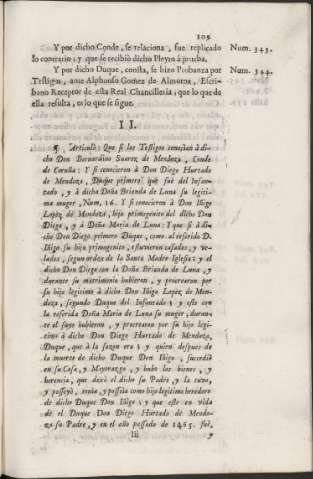 109
Y por dicho Conde, se relaciona, fue replicado Num. 343.
lo contrario; y que se recibiò dicho Pleyto à prueba.
Y por dicho Duque, consta, se hizo Probanza por Num. 344.
Testigos, ante Alphonso Gomez de Almoroz, Escri-
bano Receptor de esta Real Chancilleria, que lo que de
ella resulta, es lo que se sigue.
II.
¶. Articulò: Que si los Testigos conocian à di-
cho Don Bernardino Suarez de Mendoza, Conde
de Coruña: Y si conocieron à Don Diego Hurtado
de Mendoza, Duque primero que fue del Infan-
tado, y à dicha Doña Brianda de Luna su legiti-
ma muger, Num. 16. Y si conocieron à Don Iñigo
Lopez de Mendoza, hijo primogenito del dicho Don
Diego, y à Doña Maria de Luna: Y que si à di-
cho Don Diego primero Duque, como al referido D.
Iñigo su hijo primogenito, estuvieron casados, y ve-
lados, segun orden de la Santa Madre Iglesia: y el
dicho Don Diego con la Doña Brianda de Luna, y
durante su matrimonio hubieron, y procrearon por
su hijo legitimo à dicho Don Iñigo Lopez de Men-
doza, segundo Duque del Infantado; y este con
la referida Doña Maria de Luna su muger, duran-
te el suyo hubieron, y procrearon por su hijo legi-
timo à dicho Don Diego Hurtado de Mendoza,
Duque, que à la sazon era; y quien despues de
la muerte de dicho Duque Don Iñigo, sucediò
en su Casa, y Mayorazgo, y hubo los bienes, y
herencia, que dexò el dicho su Padre, y la tuvo,
y posseyò, tenia, y posseìa como hijo legitimo heredero
de dicho Duque Don Iñigo; y que este en vida
de el Duque Don Diego Hurtado de Mendo-
za su Padre, y en el año passado de 1465. fue,
Iii y